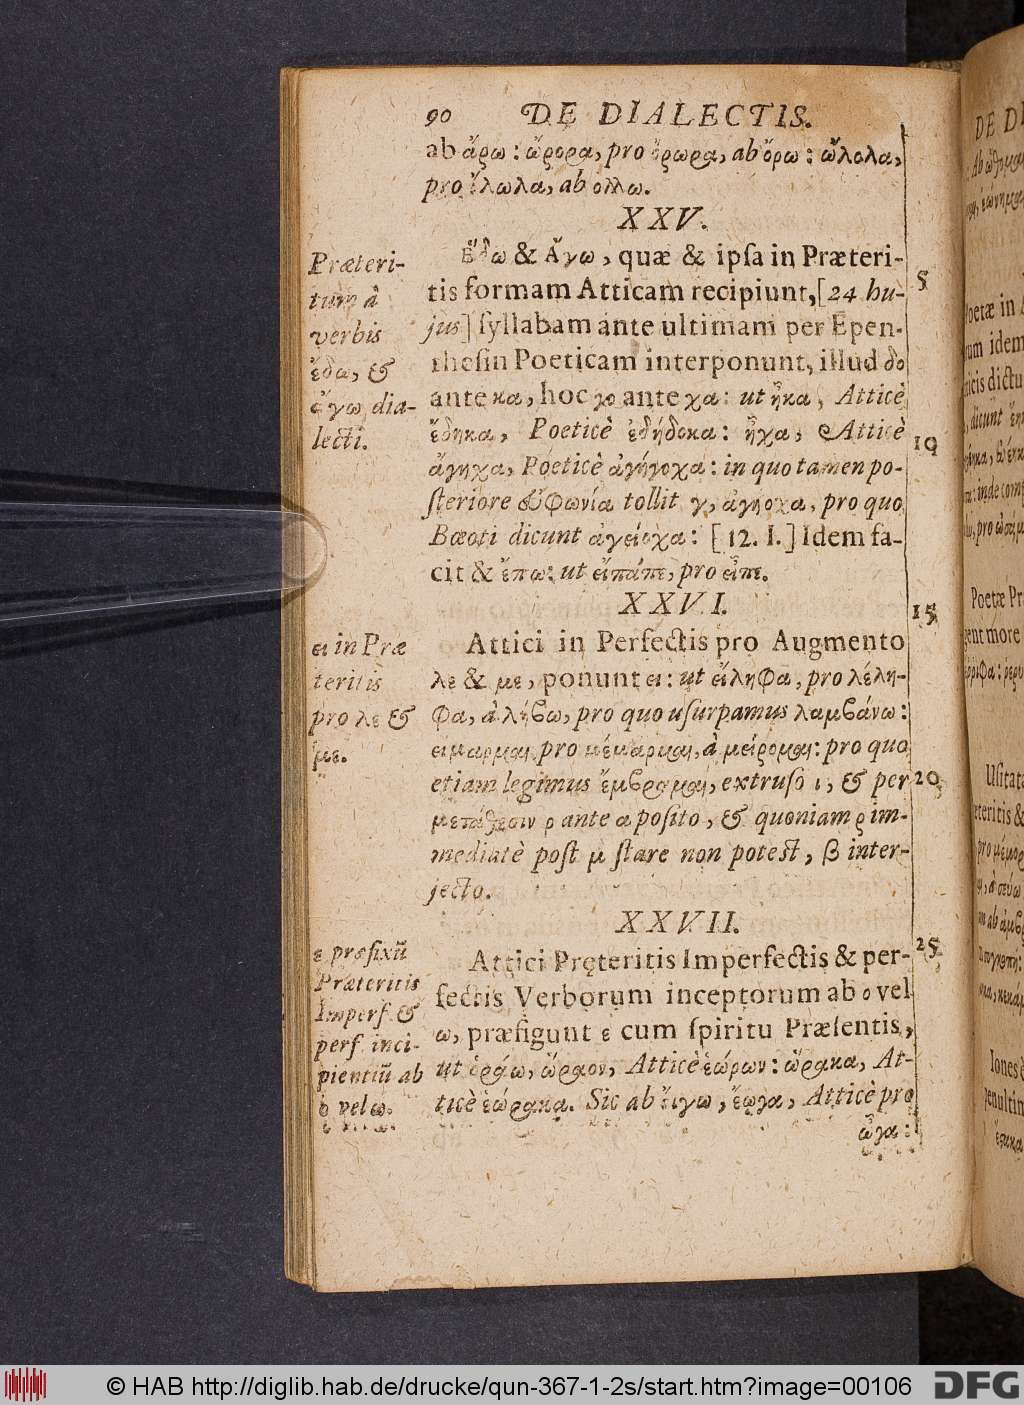 90 DE DIALECTIS.
ab ἄρω : ὤρορα, pro ὄρωρα, ab ὄρω : ὤλολα,
pro ὄλωλα, ab ολλω.
XXV.
Præteri-
tum à
verbis
ἔδω, &
ἄγω dia-
lecti.
Ἔδω & Ἄγω, quæ & ipſa in Præteri-
tis formam Atticam recipiunt, [24 hu-
jus] ſyllabam ante ultimam per Epen-
theſin Poeticam interponunt, illud δο
ante κα, hoc γο ante χα: ut ἦκα, Atticè
ἔδηκα, Poeticè ἐδήδοκα: ἦχα, Atticè
ἄγηχα, Poeticè ἀγήγοχα: in quo tamen po-
ſteriore εὐφωνία tollit γ, ἀγήοχα, pro quo
Bœoti dicunt ἀγείοχα: [12. I.] Idem fa-
cit & ἔπω: ut εἴπαπε, pro εἶπε.
XXVI.
ει in Præ
teritis
pro λε &
με.
Attici in Perfectis pro Augmento
λε & με, ponunt ει: ut εἴληφα, pro λέλη-
φα, à λήβω, pro quo uſurpamus λαμβάνω:
ειμαρμαι pro μέμαρμαι, à μείρομαι: pro quo
etiam legimus ἔμβραμαι, extruſo ι, & per
μετάθεσιν ρ ante α poſito, & quoniam ρ im-
mediatè poſt μ ſtare non poteſt, β inter-
jecto.
XXVII.
ε præfixũ
Præteritis
Imperf. &
perf. inci-
pientiũ ab
ο vel ω.
Attici Pręteritis Imperfectis & per-
fectis Verborum inceptorum ab ο vel
ω, præfigunt ε cum ſpiritu Præſentis,
ut ὁράω, ὥραον, Atticè ἑώρων: ὥρακα, At-
ticè ἑώρακα. Sic ab οἴγω, ἔῳγα, Atticè pro
ὦγα:
5
10
15
20
25
DE DI
© HAB http://diglib.hab.de/drucke/qun-367-1-2s/start.htm?image=00106
DFG